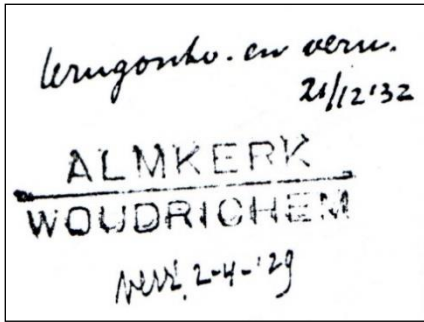 terugontv. en vern.
21/12'32
ALMKERK
WOUDRICHEM
2-4-'29